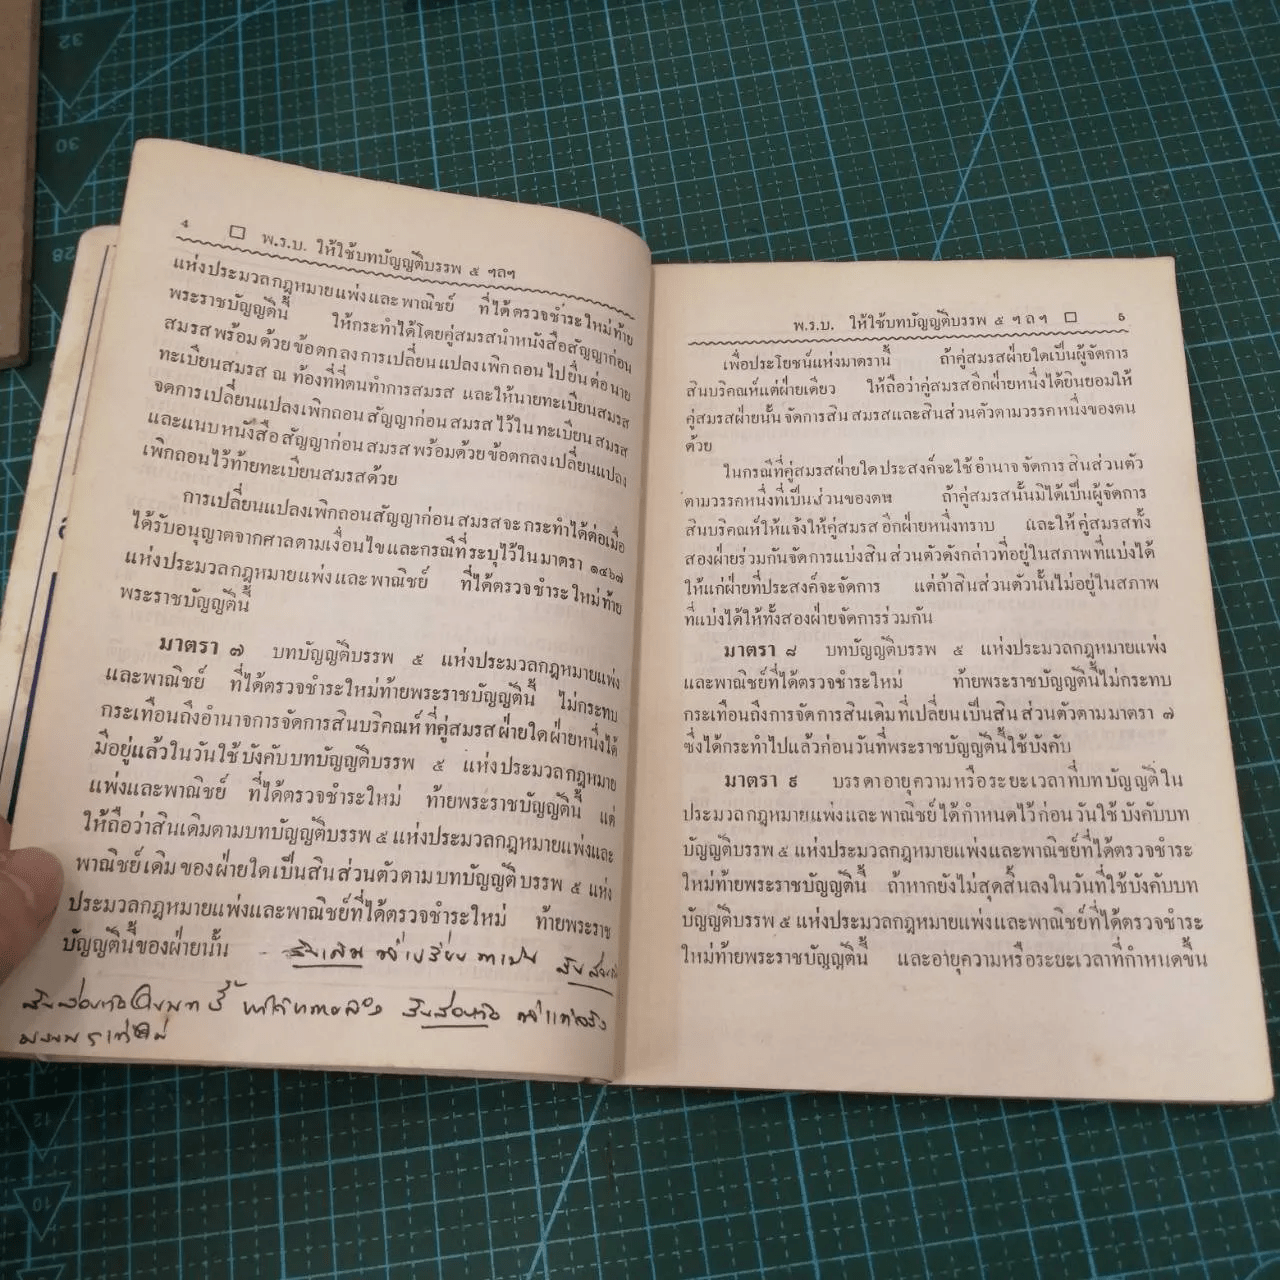 4 □ พ.ร.บ. ให้ใช้บทบัญญัติบรรพ ๕ ฯลฯ
แห่งประมวลกฎหมายแพ่งและพาณิชย์ ที่ได้ตรวจชำระใหม่ท้าย
พระราชบัญญัตินี้ ให้กระทำได้โดยคู่สมรสนำหนังสือสัญญาก่อน
สมรสพร้อมด้วยข้อตกลงการเปลี่ยนแปลงเพิกถอนไปยื่นต่อนาย
ทะเบียนสมรส ณ ท้องที่ที่ตนทำการสมรส และให้นายทะเบียนสมรส
จดการเปลี่ยนแปลงเพิกถอนสัญญาก่อนสมรสไว้ในทะเบียนสมรส
และแนบหนังสือสัญญาก่อนสมรสพร้อมด้วยข้อตกลงเปลี่ยนแปลง
เพิกถอนไว้ท้ายทะเบียนสมรสด้วย
การเปลี่ยนแปลงเพิกถอนสัญญาก่อนสมรสจะกระทำได้ต่อเมื่อ
ได้รับอนุญาตจากศาลตามเงื่อนไขและกรณีที่ระบุไว้ในมาตรา ๑๔๖๗
แห่งประมวลกฎหมายแพ่งและพาณิชย์ ที่ได้ตรวจชำระใหม่ท้าย
พระราชบัญญัตินี้
มาตรา ๗ บทบัญญัติบรรพ ๕ แห่งประมวลกฎหมายแพ่ง
และพาณิชย์ ที่ได้ตรวจชำระใหม่ท้ายพระราชบัญญัตินี้ ไม่กระทบ
กระเทือนถึงอำนาจการจัดการสินบริคณห์ที่คู่สมรสฝ่ายใดฝ่ายหนึ่งได้
มีอยู่แล้วในวันใช้บังคับบทบัญญัติบรรพ ๕ แห่งประมวลกฎหมาย
แพ่งและพาณิชย์ ที่ได้ตรวจชำระใหม่ ท้ายพระราชบัญญัตินี้ แต่
ให้ถือว่าสินเดิมตามบทบัญญัติบรรพ ๕ แห่งประมวลกฎหมายแพ่งและ
พาณิชย์เดิมของฝ่ายใดเป็นสินส่วนตัวตามบทบัญญัติบรรพ ๕ แห่ง
ประมวลกฎหมายแพ่งและพาณิชย์ที่ได้ตรวจชำระใหม่ ท้ายพระราช
บัญญัตินี้ของฝ่ายนั้น สินเดิม
สินส่วนตัว
พ.ร.บ. ให้ใช้บทบัญญัติบรรพ ๕ ฯลฯ □ 5
เพื่อประโยชน์แห่งมาตรานี้ ถ้าคู่สมรสฝ่ายใดเป็นผู้จัดการ
สินบริคณห์แต่ฝ่ายเดียว ให้ถือว่าคู่สมรสอีกฝ่ายหนึ่งได้ยินยอมให้
คู่สมรสฝ่ายนั้นจัดการสินสมรสและสินส่วนตัวตามวรรคหนึ่งของตน
ด้วย
ในกรณีที่คู่สมรสฝ่ายใดประสงค์จะใช้อำนาจจัดการสินส่วนตัว
ตามวรรคหนึ่งที่เป็นส่วนของตน ถ้าคู่สมรสนั้นมิได้เป็นผู้จัดการ
สินบริคณห์ให้แจ้งให้คู่สมรสอีกฝ่ายหนึ่งทราบ และให้คู่สมรสทั้ง
สองฝ่ายร่วมกันจัดการแบ่งสินส่วนตัวดังกล่าวที่อยู่ในสภาพที่แบ่งได้
ให้แก่ฝ่ายที่ประสงค์จะจัดการ แต่ถ้าสินส่วนตัวนั้นไม่อยู่ในสภาพ
ที่แบ่งได้ให้ทั้งสองฝ่ายจัดการร่วมกัน
มาตรา ๘ บทบัญญัติบรรพ ๕ แห่งประมวลกฎหมายแพ่ง
และพาณิชย์ที่ได้ตรวจชำระใหม่ ท้ายพระราชบัญญัตินี้ไม่กระทบ
กระเทือนถึงการจัดการสินเดิมที่เปลี่ยนเป็นสินส่วนตัวตามมาตรา ๗
ซึ่งได้กระทำไปแล้วก่อนวันที่พระราชบัญญัตินี้ใช้บังคับ
มาตรา ๙ บรรดาอายุความหรือระยะเวลาที่บทบัญญัติใน
ประมวลกฎหมายแพ่งและพาณิชย์ได้กำหนดไว้ก่อนวันใช้บังคับบท
บัญญัติบรรพ ๕ แห่งประมวลกฎหมายแพ่งและพาณิชย์ที่ได้ตรวจชำระ
ใหม่ท้ายพระราชบัญญัตินี้ ถ้าหากยังไม่สุดสิ้นลงในวันที่ใช้บังคับบท
บัญญัติบรรพ ๕ แห่งประมวลกฎหมายแพ่งและพาณิชย์ที่ได้ตรวจชำระ
ใหม่ท้ายพระราชบัญญัตินี้ และอายุความหรือระยะเวลาที่กำหนดขึ้น
32
30
28
12
10